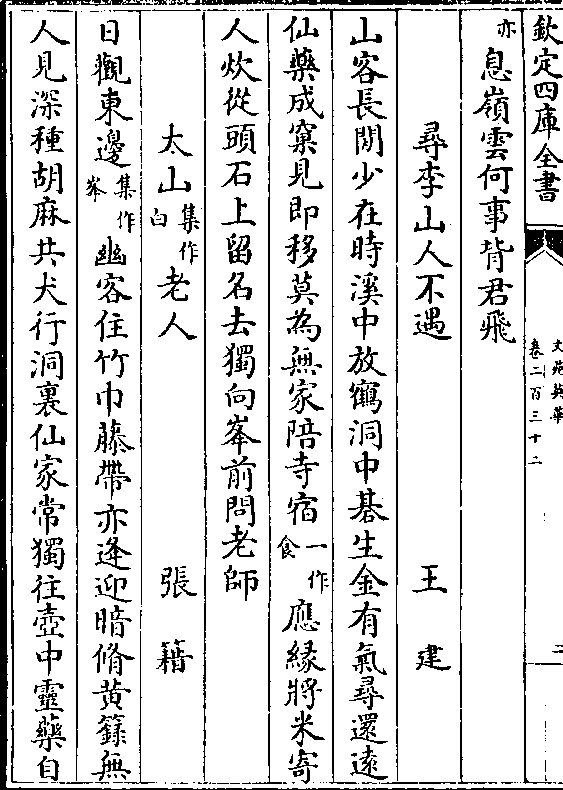 欽定四庫全書
文苑英華
卷二百三十二
二
亦息嶺雲何事背君飛
尋李山人不遇 王建
山客長閒少在時溪中放鶴洞中碁生金有氣尋還遠
仙藥成窠見即移莫為無家陪寺宿一作食應緣將米寄
人炊從頭石上留名去獨向峯前問老師
太山集作白老人 張籍
日觀東邊集作峯幽客住竹巾藤帶亦逢迎暗脩黄籙無
人見深種胡麻共犬行洞裏仙家常獨往壺中靈藥自